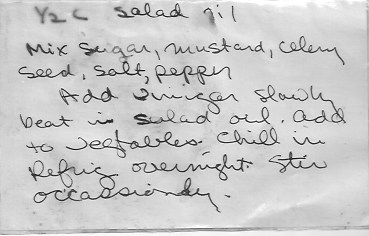 1/2 C salad oil
Mix sugar, mustard, celery
seed, salt, pepper
Add vinegar slowly
beat in salad oil. add
to vegetables. Chill in
Refrig overnight. Stir
occassionly.